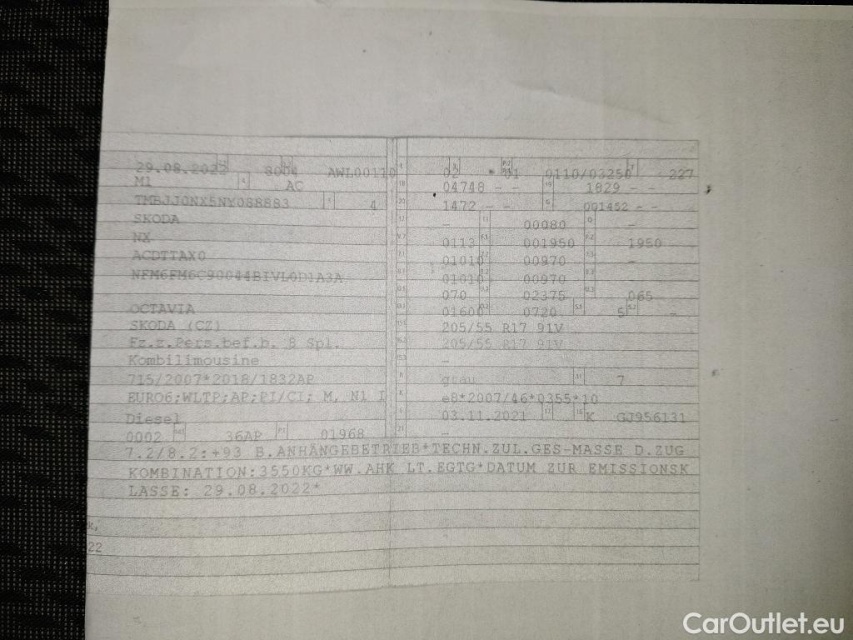 29.08.2022 8004 AWL00110 02 01 0110/03250 227
M1 AC 04748 - - 1829 - -
TMBJJ0NX5NY088883 4 1472 - - 001452 - -
SKODA - 00080 -
NX 0113 001950 1950
ACDTTAX0 01010 00970 -
NFM6FM6C90044BIVLGD1A3A 01010 00970
070 02375 065
OCTAVIA 01600 0720 5 -
SKODA (CZ) 205/55 R17 91V
Fz.z.Pers.bef.b. 8 Spl. 205/55 R17 91V
Kombilimousine -
715/2007*2018/1832AP grau 7
EURO6;WLTP;AP;PI/CI; M, N1 I e8*2007/46*0355*10
Diesel 03.11.2021 K GJ956131
0002 36AP 01968 -
7.2/8.2:+93 B.ANHÄNGEBETRIEB*TECHN.ZUL.GES-MASSE D.ZUG
KOMBINATION:3550KG*WW.AHK LT.EGTG*DATUM ZUR EMISSIONSK
LASSE: 29.08.2022*
22
CarOutlet.eu